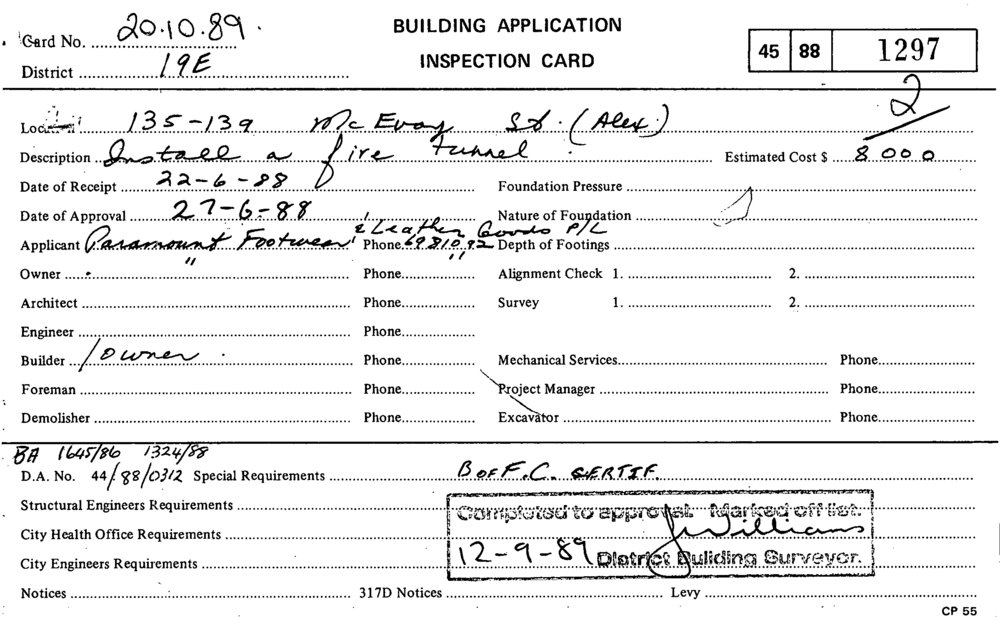 BUILDING APPLICATION
INSPECTION CARD
Card No. 20.10.89.
District 19E
45 88 1297
2
135-139 McEvoy St. (Alex)
Description Install a fire tunnel. Estimated Cost $ 8000
Date of Receipt 22-6-88 Foundation Pressure
Date of Approval 27-6-88 Nature of Foundation
Applicant Paramount Footwear & Leather Goods P/L Phone 6981092 Depth of Footings
Owner " Phone " Alignment Check 1. 2.
Architect Phone Survey 1. 2.
Engineer Phone
Builder /owner. Phone Mechanical Services Phone
Foreman Phone Project Manager Phone
Demolisher Phone Excavator Phone
BA 1645/86 1324/88
D.A. No. 44/88/0312 Special Requirements B of F.C. CERTIF.
Structural Engineers Requirements
Completed to approval. Marked off list.
City Health Office Requirements
JWilliams
12-9-89 District Building Surveyor.
City Engineers Requirements
Notices 317D Notices Levy
CP 55